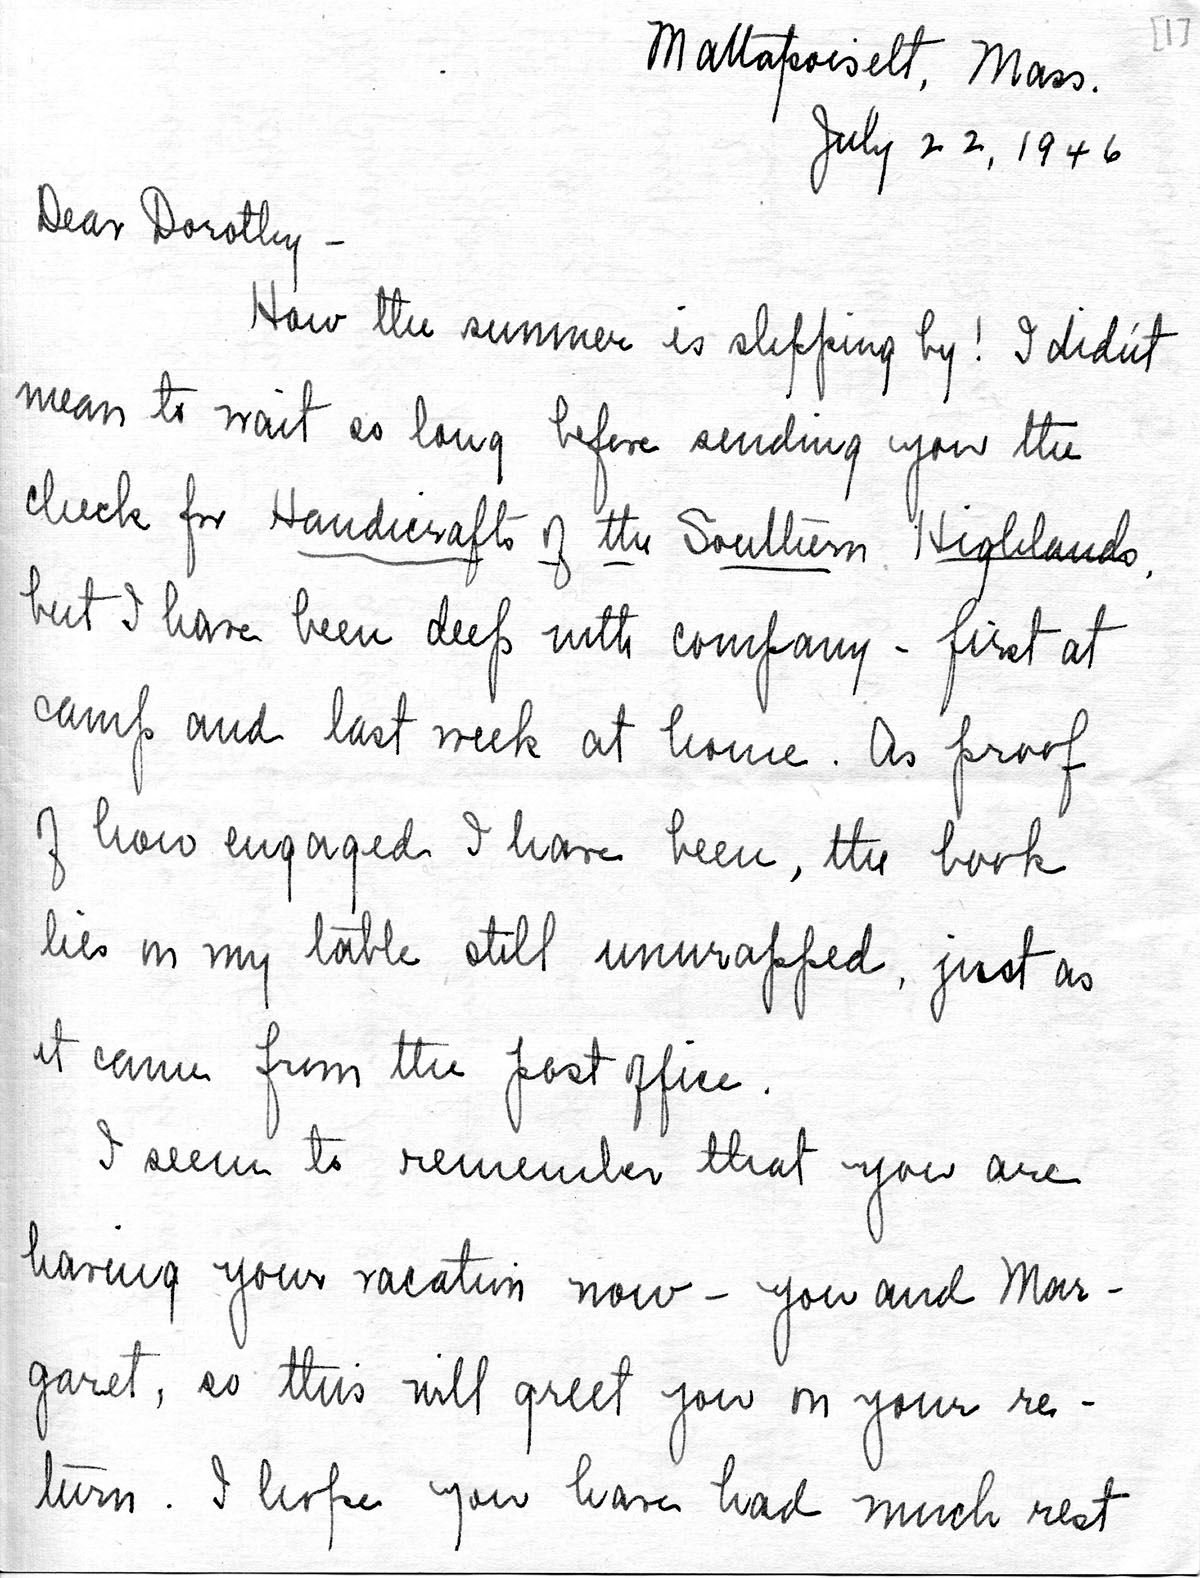 [1]
Mattapoisett, Mass.
July 22, 1946
Dear Dorothy –
How the summer is slipping by! I didn't
mean to wait so long before sending you the
check for Handicrafts of the Southern Highlands,
but I have been deep with company – first at
camp and last week at home. As proof
of how engaged I have been, the book
lies on my table still unwrapped, just as
it came from the post office.
I seem to remember that you are
having your vacation now – you and Mar-
garet, so this will greet you on your re-
turn. I hope you have had much rest